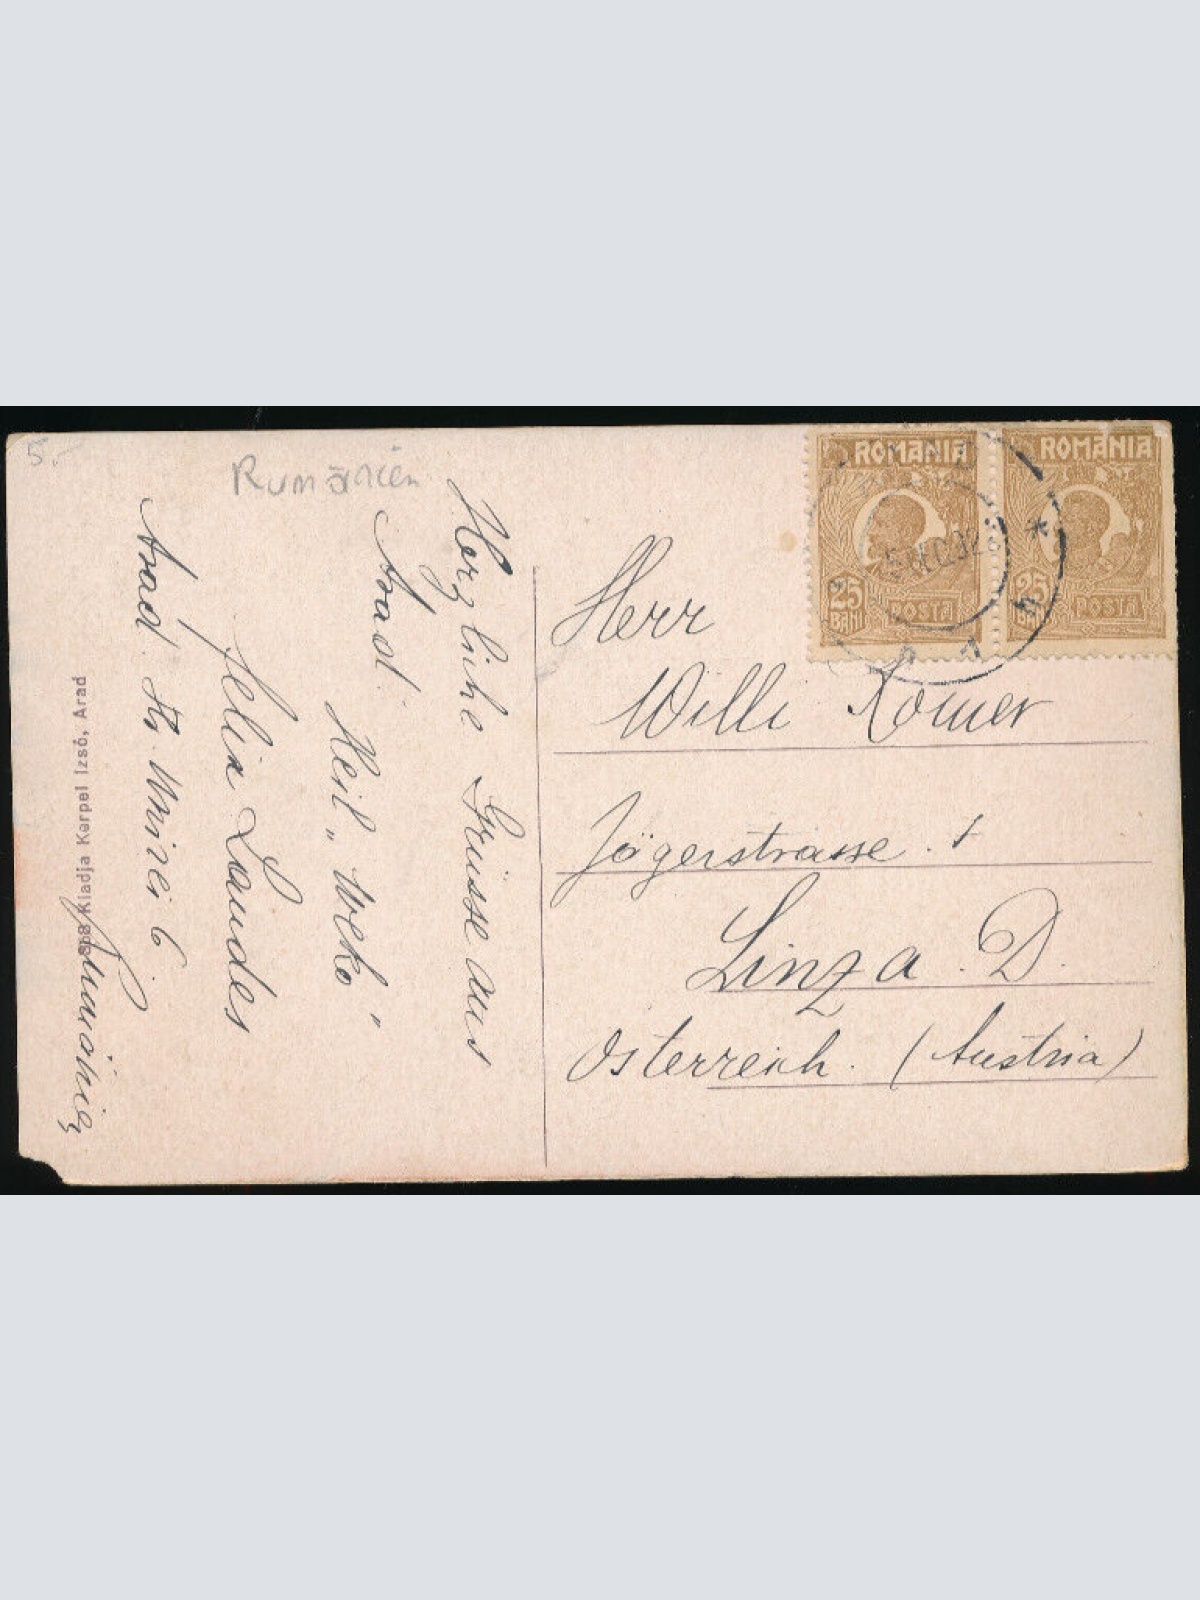 5.-
Rumänien
Herzliche Grüsse aus
Arad.
Heil „Weko"
Felix Landes
Arad. Str. Unirei 6.
Rumänien
Kiadja Kerpel Izsó, Arad
ROMANIA
25
BANI
POSTA
ROMANIA
25
BANI
POSTA
Herr
Willi Romer
Jägerstrasse. 1
Linz a. D.
Österreich. (Austria)